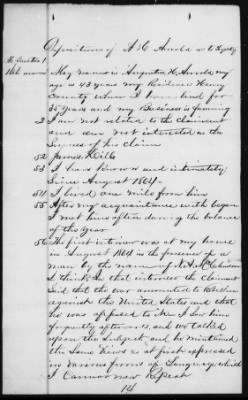 Deposition of A H Arnold as to Loyalty
To Question 1
My name is Augustus H. Arnold my
age is 43 years my Residence Henry
County where I have lived for
35 years and my Business is farming
2 I am not related to the claimant
and am not interested in the
success of his claim
52 James Mills
53 I have known and intimately
Since August 1864
54 I lived one mile from him
55 After my acquaintance with began
I met him often during the balance
of the year
56 The first interview was at my house
in August 1864 in the presence of a
man by the name of
I think in that interview the claimant
Said that the war amounted to Rebellion
against the United States and that
he was opposed to it I saw him
frequently afterwards, and we talked
upon the subject and he mentioned
the Same Views as at first expressed
in various forms of language which
I Cannot now Repeat
14